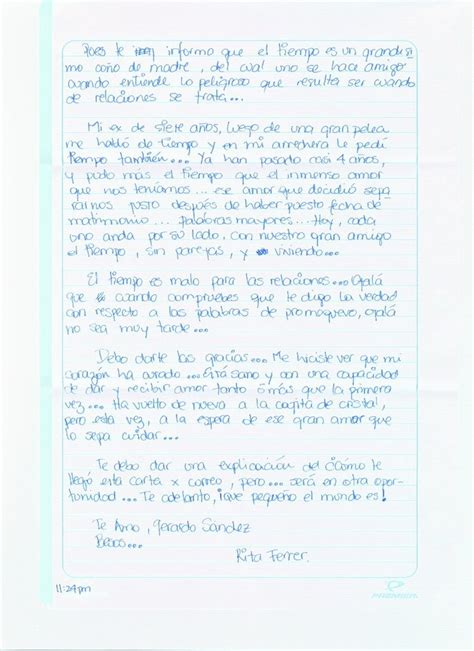 Pues te informo que el tiempo es un grandísi
mo coño de madre, del cual uno se hace amigo
cuando entiende lo peligroso que resulta ser cuando
de relaciones se trata...
Mi ex de siete años, luego de una gran pelea
me habló de tiempo y en mi arrechera le pedí
tiempo también... Ya han pasado casi 4 años,
y pudo más el tiempo que el inmenso amor
que nos teníamos... ese amor que decidió sepa
rarnos justo después de haber puesto fecha de
matrimonio... Palabras mayores... Hoy, cada
uno anda por su lado. Con nuestro gran amigo
el tiempo, sin parejas, y viviendo...
El tiempo es malo para las relaciones... Ojalá
que cuando compruebes que te digo la verdad
con respecto a las palabras de promoquevo, ojalá
no sea muy tarde...
Debo darte las gracias... Me hiciste ver que mi
corazón ha Está sano y con una capacidad
de dar y recibir amor tanto ó más que la primera
vez... Ha vuelto de nuevo a la cajita de cristal,
pero esta vez, a la espera de ese gran amor que
lo sepa cuidar...
Te debo dar una explicación del cómo te
llegó esta carta x correo, pero... será en otra opor-
tunidad... Te adelanto, ¡que pequeño el mundo es!
Te Amo, Gerardo Sández
Besos...
Rita Ferrer.
11:24pm